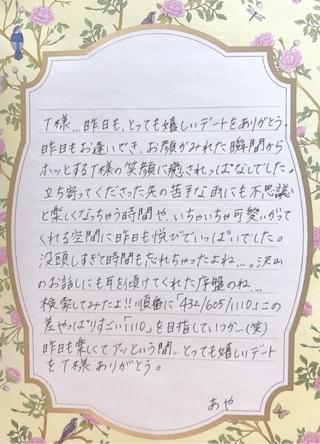 T様…昨日も、とっても嬉しいデートをありがとう。
昨日もお逢いでき、お顔がみれた瞬間から
ホッとするT様の笑顔に癒されっぱなしでした。
立ち寄ってくださった矢の苦手な雨にも不思議
と楽しくなっちゃう時間や、いちゃいちゃ可愛いがって
くれる空間に昨日も悦びでいっぱいでした。
没頭しすぎて時間も忘れちゃったよね…。沢山
のお話しにも耳を傾けてくれた序盤のね…
検索してみたよ!!順番に「432/605/1110」この
差やっぱりすごい「1110」を目指していつか…(笑)
昨日も楽しくてアッという間…とっても嬉しいデート
をT様ありがとう。
あや